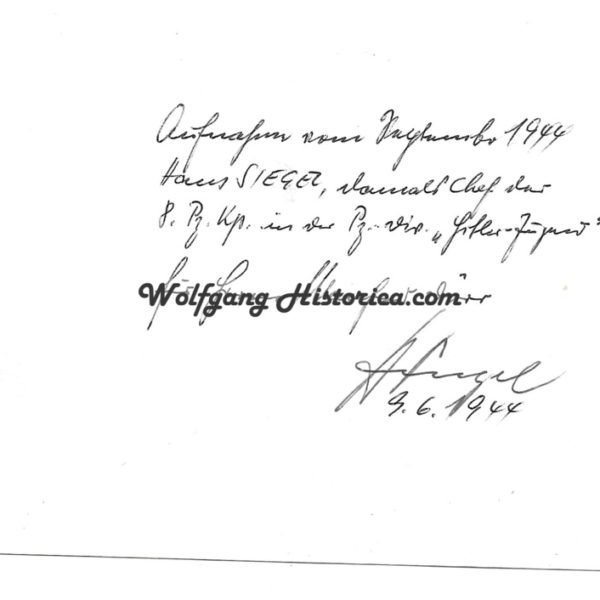 Aufnahme vom September 1944
Hans SIEGEL, damals Chef der
8. Pz. Kp. in der Pz.-Div. „Hitler-Jugend"
für Herrn
Wolfgang Historica.com
HSiegel
9.6.1944